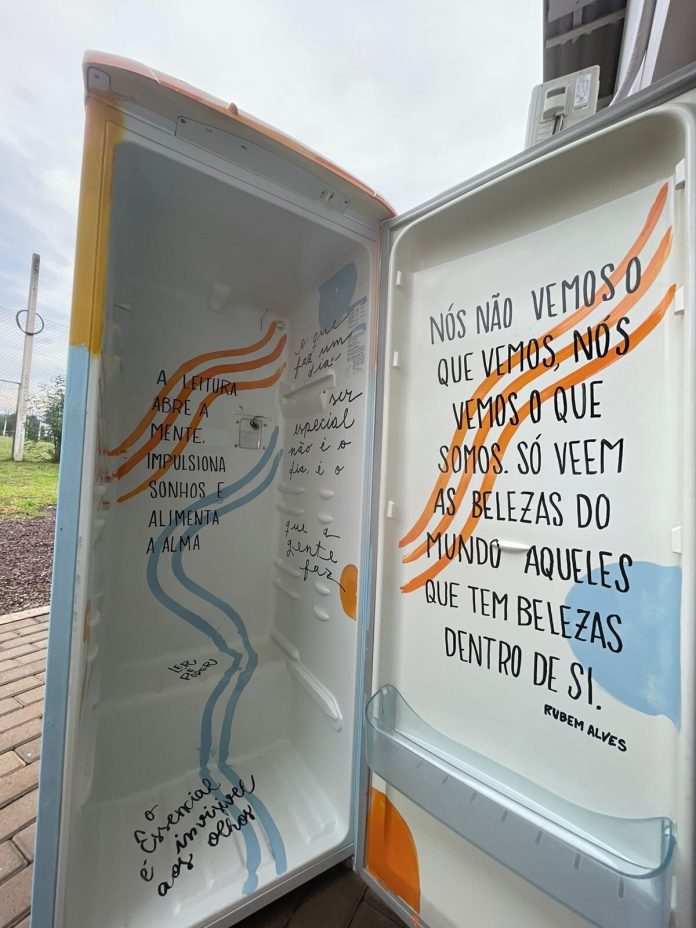 A LEITURA
ABRE A
MENTE.
IMPULSIONA
SONHOS E
ALIMENTA
A ALMA
o que
faz um
dia
ser
especial
não é o
dia, é o
que a
gente
faz
LER
É
PODER
O
Essencial
é invisível
aos olhos
NÓS NÃO VEMOS O
QUE VEMOS, NÓS
VEMOS O QUE
SOMOS. SÓ VEEM
AS BELEZAS DO
MUNDO AQUELES
QUE TEM BELEZAS
DENTRO DE SI.
RUBEM ALVES